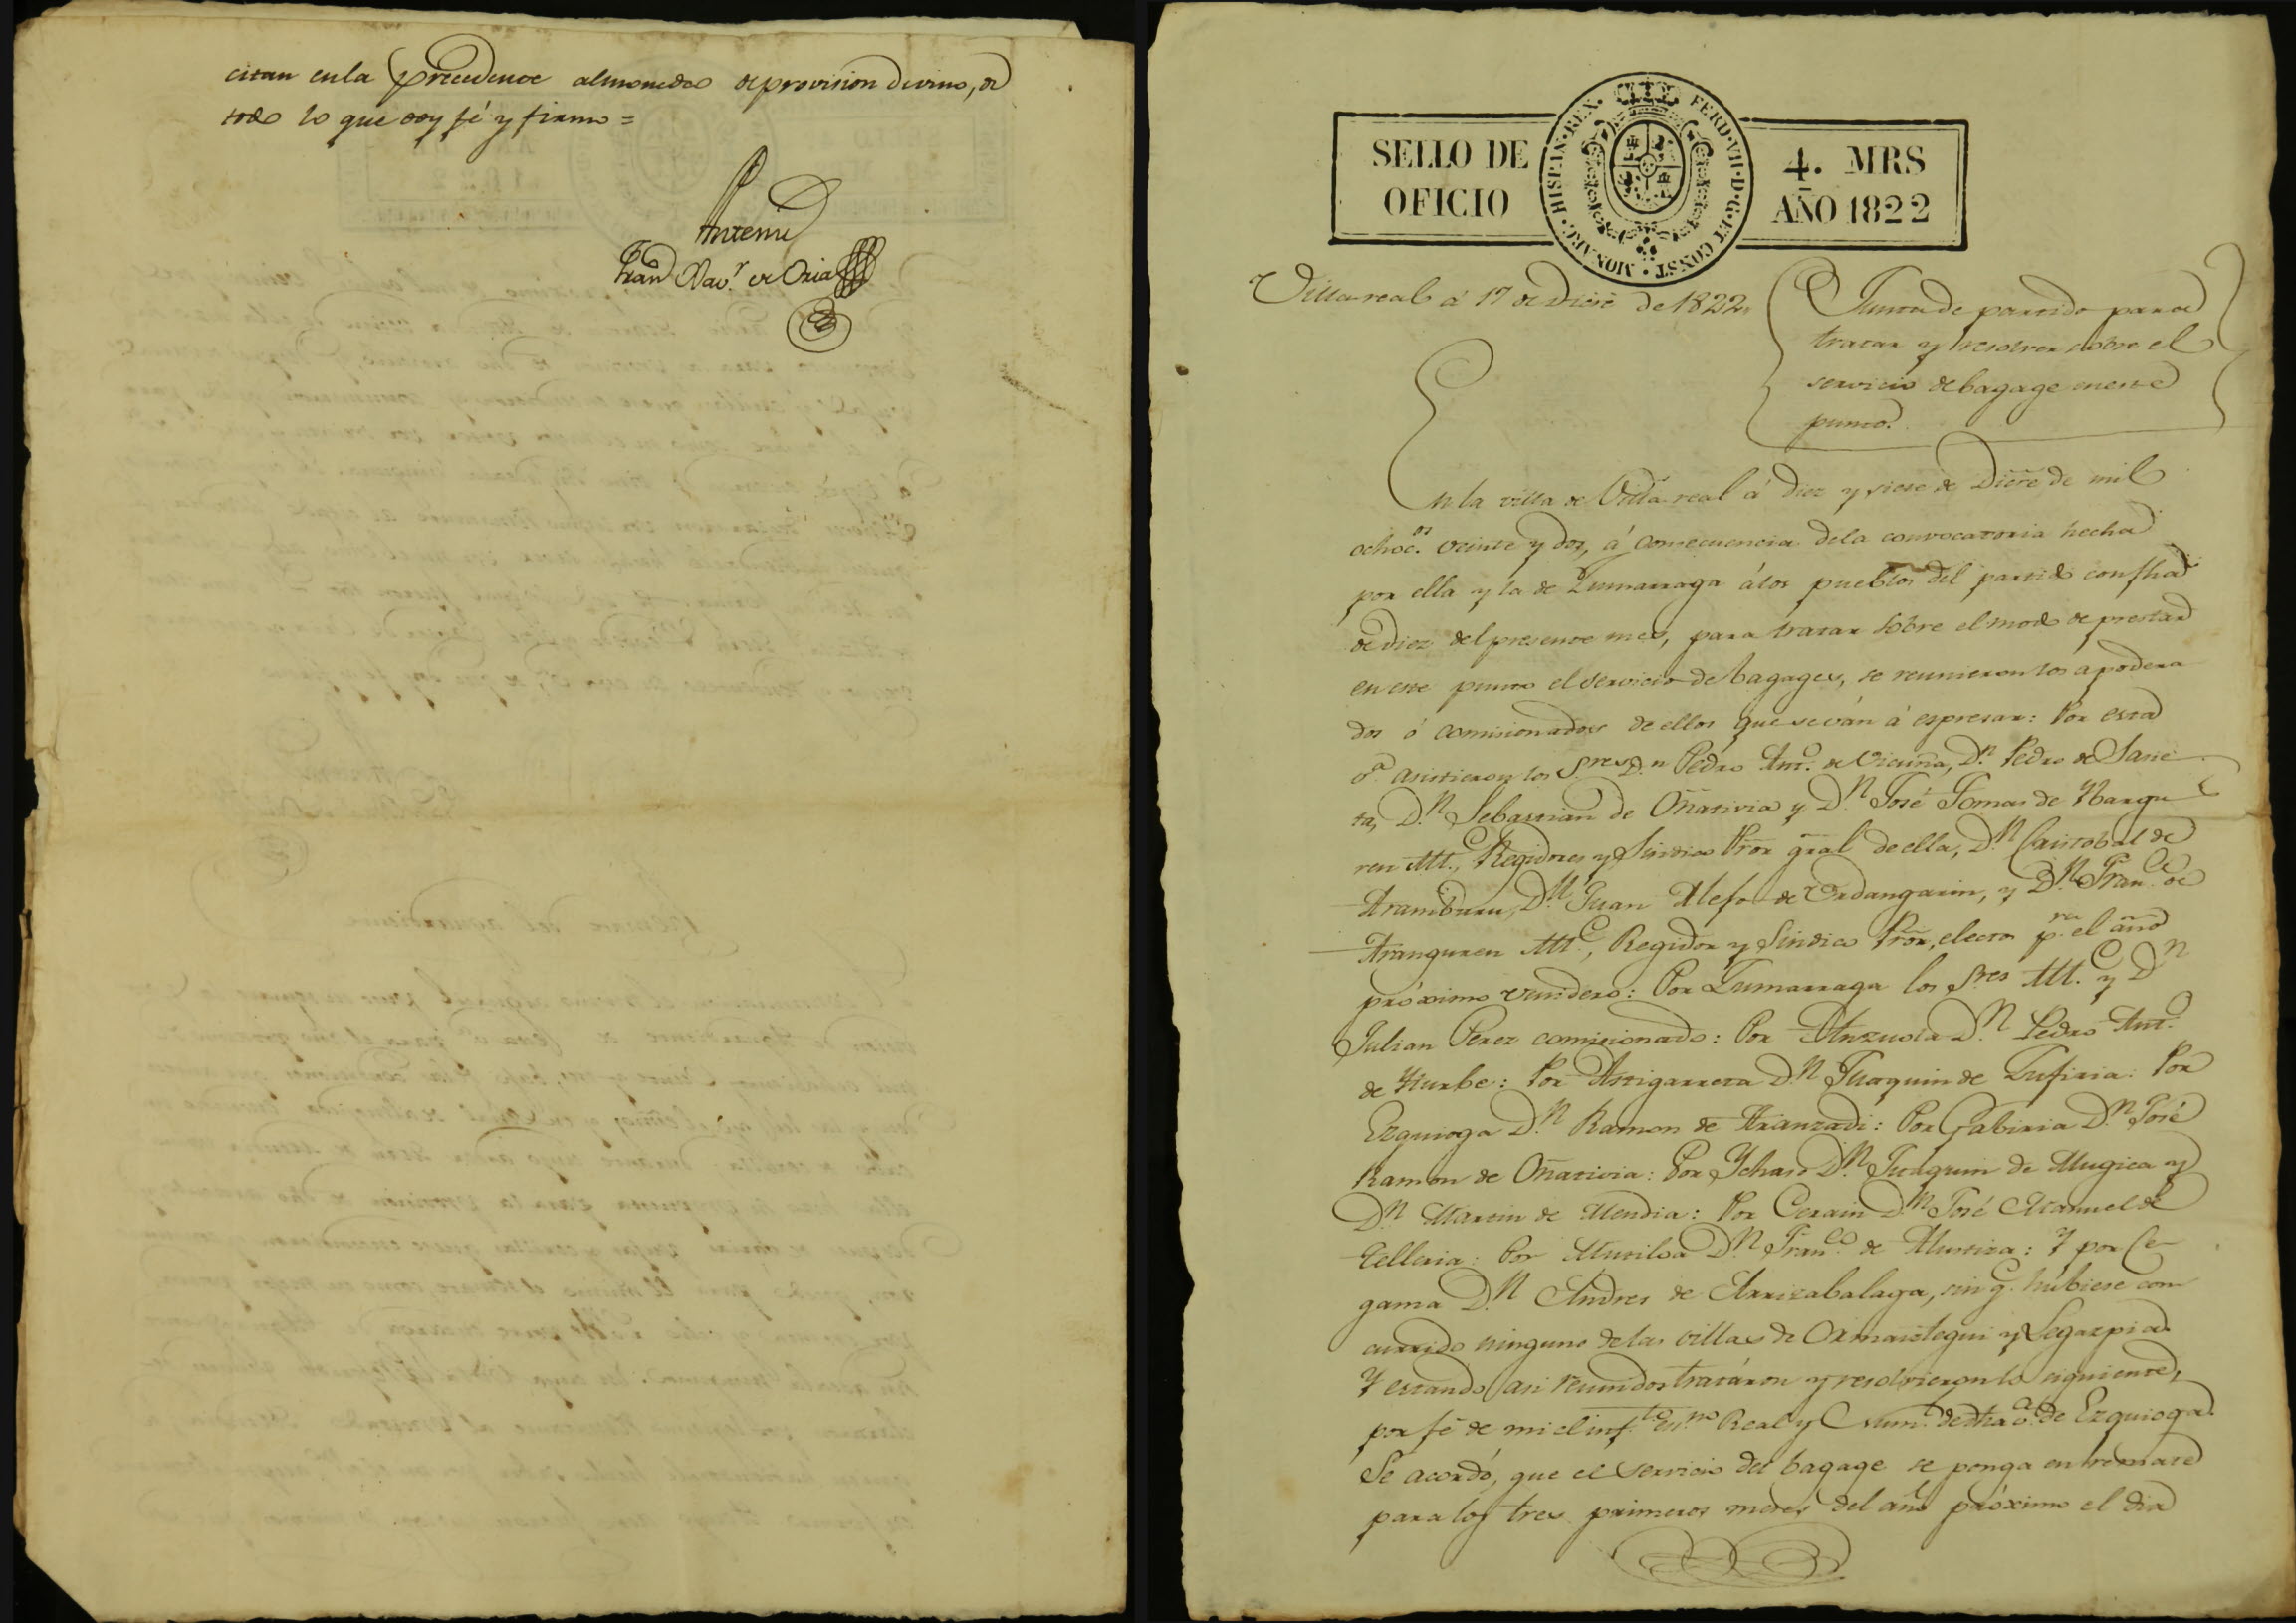 citan en la precedente almoneda de provision de vino, de
todo lo que doy fé y firmo =
Antemi
Fran.co Xav.r de Oria
SELLO DE
OFICIO
4. MRS
AÑO 1822
HISPAN·REX· FERD·VII·D·G·ET CONST· MONARC·
Villareal á 17 de Dicre de 1822
Junta de partido para
tratar y resolver sobre el
servicio de bagage en este
punto.
En la villa de Villa real á diez y siete de Dicre de mil
ochoc.os veinte y dos, á consecuencia de la convocatoria hecha
por ella y la de Zumarraga á los pueblos del partido con fha
de diez del presente mes, para tratar sobre el modo de prestar
en este punto el servicio de bagages, se reunieron los apodera
dos ó comisionados de ellos que se ván á espresar: Por esta
v.a asistieron los S.res D.n Pedro Ant.o de Vicuña, D.n Pedro de Sasie
ta, D.n Sebastian de Oñativia y D.n José Tomas de Ybargu
ren Alc.e, Regidores y Sindico Pror gral de ella, D.n Cristobal de
Aramburu, D.n Juan Alejo de Urdangarin, y D.n Fran.co de
Aranguren Alc.e, Regidor y Sindico Pror, electos p.ra el año
próximo venidero: Por Zumarraga los S.res Alc.e y D.n
Julian Perez comisionado: Por Anzuola D.n Pedro Ant.o
de Yturbe: Por Astigarreta D.n Juaquin de Zufiria: Por
Ezquioga D.n Ramon de Aranzadi: Por Gabiria D.n José
Ramon de Oñativia: Por Ychaso D.n Juaquin de Mugica y
D.n Martin de Mendia: Por Cerain D.n José Manuel de
Telleria: Por Mutiloa D.n Fran.co de Murtiza: Y por Ce-
gama D.n Andres de Arrizabalaga, sin q.e hubiese con
currido ninguno de las villas de Ormaiztegui y Legazpia.
Y estando asi reunidos tratáron y resolvieron lo siguiente,
por fé de mi el inf.to es.no Real y Num.l de dha v.a de Ezquioga.
Se acordó, que el servicio del bagage se ponga en remate
para los tres primeros meses del año próximo el dia